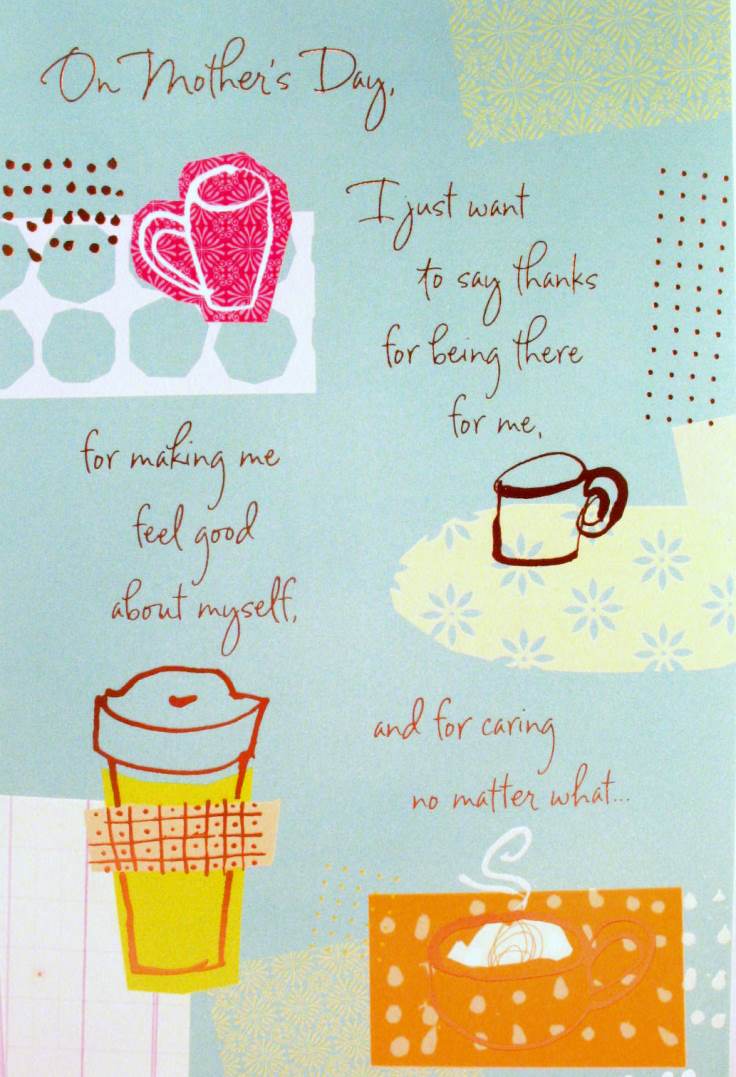 On Mother's Day,
I just want
to say thanks
for being there
for me,
for making me
feel good
about myself,
and for caring
no matter what...